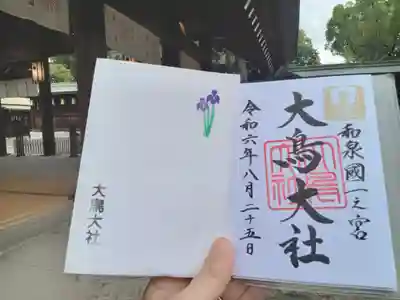 和泉國一之宮
大鳥大社
令和六年八月二十五日
大鳥大社